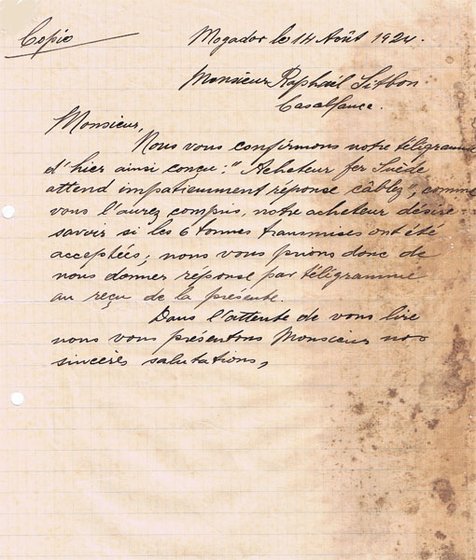 Copie
Mogador le 14 Août 1924.
Monsieur Raphaël Sitbon
Casablanca.
Monsieur,
Nous vous confirmons notre télégramme
d'hier ainsi conçu: "Acheteur fer Suède
attend impatiemment réponse câblez", comme
vous l'aurez compris, notre acheteur désire
savoir si les 6 tonnes transmises ont été
acceptées; nous vous prions donc de
nous donner réponse par télégramme
au reçu de la présente.
Dans l'attente de vous lire
nous vous présentons Monsieur nos
sincères salutations,